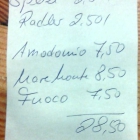 Radler 2,50
Amadonio 7,50
Morehouk 8,50
Fuoco 7,50
28,50